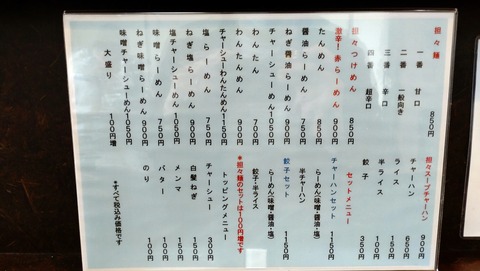 担々麺 850円
一番 甘口
二番 一般向き
三番 辛口
四番 超辛口
担々つけめん 850円
激辛！赤らーめん 900円
たんめん 850円
醤油らーめん 750円
ねぎ醤油らーめん 900円
チャーシューめん 1050円
わんたん 700円
わんたんめん 900円
チャーシューわんたんめん 1150円
塩らーめん 750円
ねぎ塩らーめん 900円
塩チャーシューめん 1050円
味噌らーめん 750円
ねぎ味噌らーめん 900円
味噌チャーシューめん 1050円
大盛り 100円増
担々スープチャーハン 900円
チャーハン 650円
ライス 150円
半ライス 100円
餃子 350円
セットメニュー
チャーハンセット 1150円
らーめん(味噌・醤油・塩)
半チャーハン
餃子セット 1150円
らーめん(味噌・醤油・塩)
餃子・半ライス
＊担々麺のセットは100円増です
トッピングメニュー
チャーシュー 300円
白髪ねぎ 150円
メンマ 150円
バター 100円
のり 100円
＊すべて税込み価格です